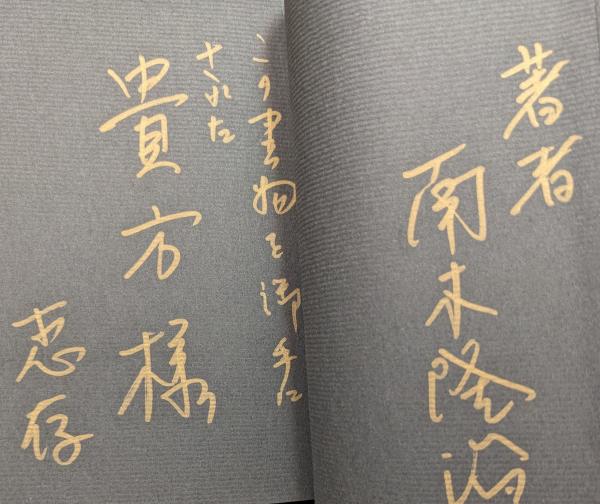 著者
南木隆治
この書物を御手に
された
貴方様
恵存